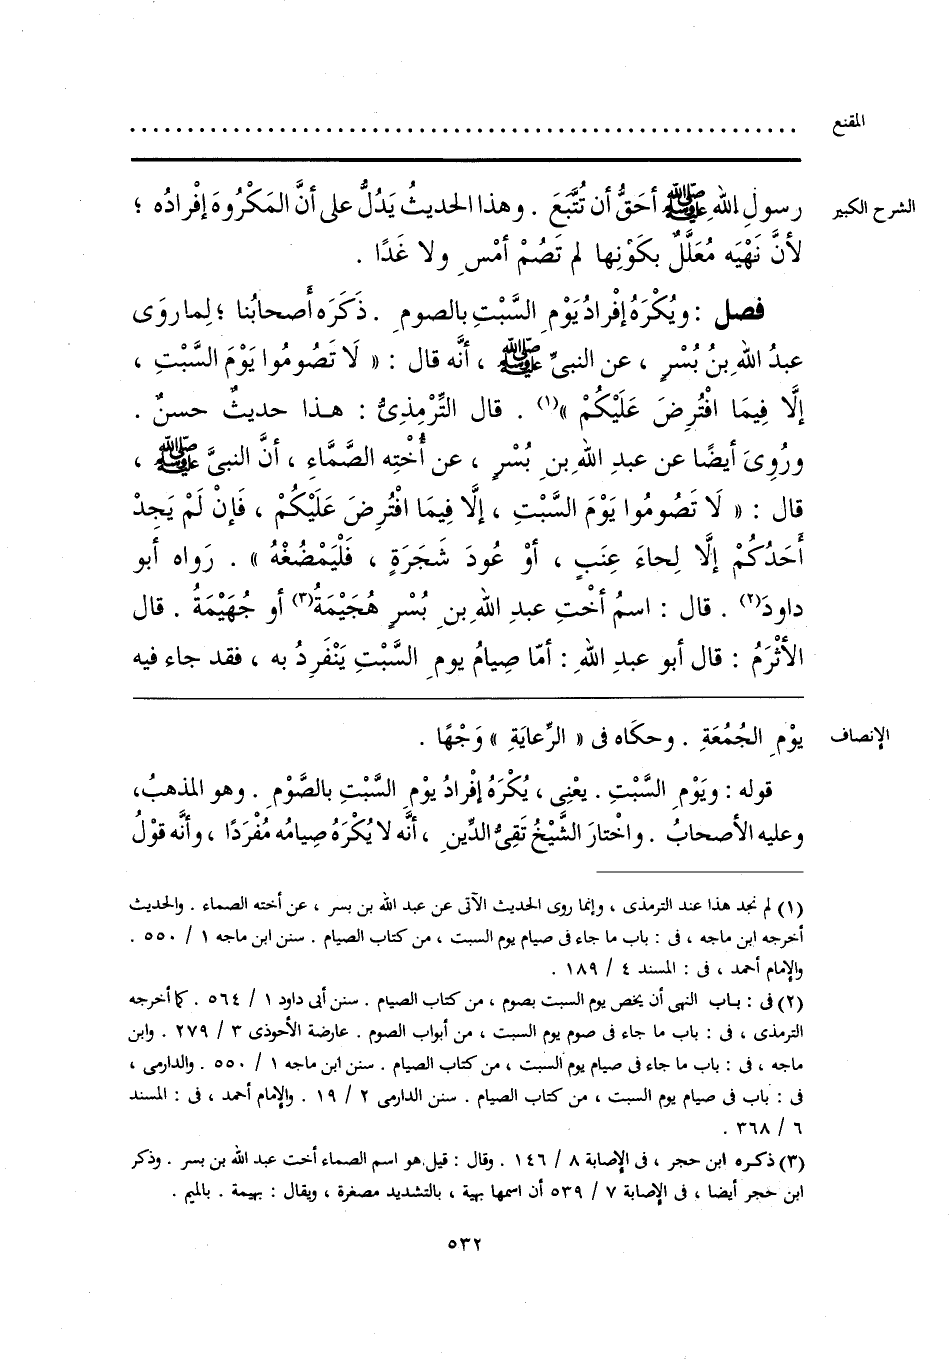 المقنع ............................................................
الشرح الكبير رسولِ اللهِ ﷺ أحَقُّ أن تُتَّبَعَ . وهذا الحديثُ يَدُلُّ على أنَّ المَكْرُوهَ إفْرادُه ؛
لأنَّ نَهْيَه مُعَلَّلٌ بكَوْنِها لم تَصُمْ أمْسِ ولا غَدًا .
فصل : ويُكْرَهُ إفْرادُ يَوْمِ السَّبْتِ بالصومِ . ذَكَرَه أصحابُنا ؛ لِما روَى
عبدُ اللهِ بنُ بُسْرٍ ، عن النبىِّ ﷺ ، أنَّه قال : « لَا تَصُومُوا يَوْمَ السَّبْتِ ،
إلَّا فِيمَا افْتُرِضَ عَلَيْكُمْ »(١) . قال التِّرْمِذِىُّ : هـذا حديثٌ حسنٌ .
ورُوِىَ أيضًا عن عبدِ اللهِ بنِ بُسْرٍ ، عن أُخْتِه الصَّمَّاءِ ، أنَّ النبىَّ ﷺ ،
قال : « لَا تَصُومُوا يَوْمَ السَّبْتِ ، إلَّا فِيمَا افْتُرِضَ عَلَيْكُمْ ، فَإِنْ لَمْ يَجِدْ
أَحَدُكُمْ إلَّا لِحاءَ عِنَبٍ ، أوْ عُودَ شَجَرَةٍ ، فَلْيَمْضُغْهُ » . رَواه أبو
داودَ(٢) . قال : اسمُ أخْتِ عبدِ اللهِ بنِ بُسْرٍ هُجَيْمَةُ(٣) أو جُهَيْمَةُ . قال
الأثْرَمُ : قال أبو عبدِ اللهِ : أمّا صِيامُ يومِ السَّبْتِ يَنْفَرِدُ به ، فقد جاء فيه
الإنصاف يوْمِ الجُمُعَةِ . وحكَاه فى « الرِّعايَةِ » وَجْهًا .
قوله : ويَوْمِ السَّبْتِ . يعْنِى ، يُكْرَهُ إفْرادُ يوْمِ السَّبْتِ بالصَّوْمِ . وهو المذهبُ ،
وعليه الأصحابُ . واخْتارَ الشَّيْخُ تَقِىُّ الدِّينِ ، أنَّه لا يُكْرَهُ صِيامُه مُفْرَدًا ، وأنَّه قوْلُ
(١) لم نجد هذا عند الترمذى ، وإنما روى الحديث الآتى عن عبد الله بن بسر ، عن أخته الصماء . والحديث
أخرجه ابن ماجه ، فى : باب ما جاء فى صيام يوم السبت ، من كتاب الصيام . سنن ابن ماجه ١ / ٥٥٠ .
والإمام أحمد ، فى : المسند ٤ / ١٨٩ .
(٢) فى : باب النهى أن يخص يوم السبت بصوم ، من كتاب الصيام . سنن أبى داود ١ / ٥٦٤ . كما أخرجه
الترمذى ، فى : باب ما جاء فى صوم يوم السبت ، من أبواب الصوم . عارضة الأحوذى ٣ / ٢٧٩ . وابن
ماجه ، فى : باب ما جاء فى صيام يوم السبت ، من كتاب الصيام . سنن ابن ماجه ١ / ٥٥٠ . والدارمى ،
فى : باب فى صيام يوم السبت ، من كتاب الصيام . سنن الدارمى ٢ / ١٩ . والإمام أحمد ، فى : المسند
٦ / ٣٦٨ .
(٣) ذكره ابن حجر ، فى الإصابة ٨ / ١٤٦ . وقال : قيل هو اسم الصماء أخت عبد الله بن بسر . وذكر
ابن حجر أيضا ، فى الإصابة ٧ / ٥٣٩ أن اسمها بهية ، بالتشديد مصغرة ، ويقال : بهيمة . بالميم .
٥٣٢